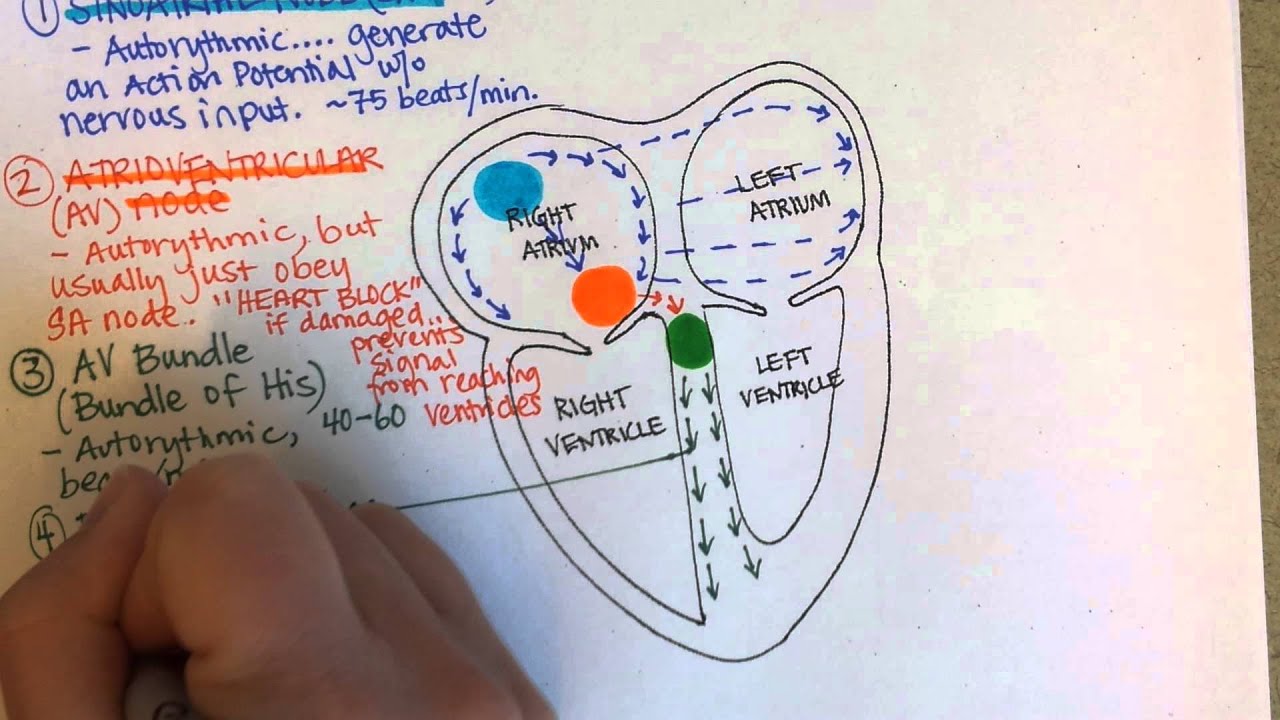 ① SINOATRIAL NODE
- Autorythmic.... generate
an Action Potential w/o
nervous input. ~75 beats/min.
② ATRIOVENTRICULAR
(AV) node
- Autorythmic, but
usually just obey
SA node.. "HEART BLOCK"
if damaged..
prevents
signal
from reaching
ventricles
③ AV Bundle
(Bundle of His)
- Autorythmic, 40-60
④
RIGHT
ATRIUM
LEFT
ATRIUM
RIGHT
VENTRICLE
LEFT
VENTRICLE